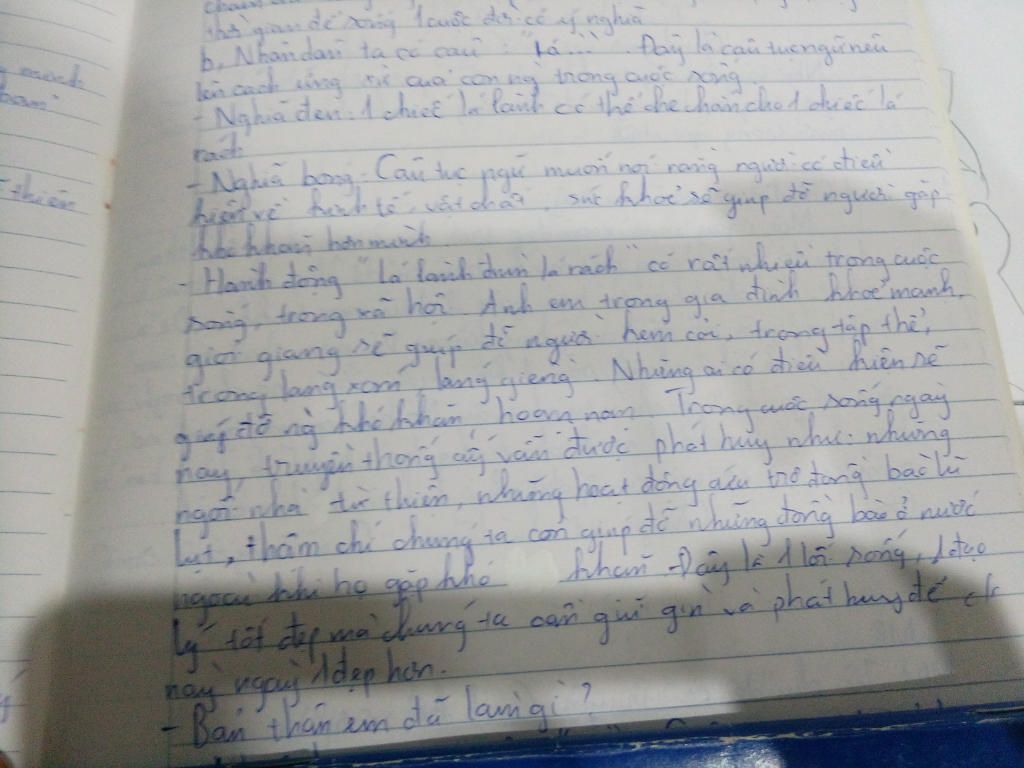 thời gian để sống 1 cuộc đời có ý nghĩa
b, Nhân dân ta có câu : "Lá...". Đây là câu tục ngữ nêu
lên cách ứng xử của con ng trong cuộc sống.
- Nghĩa đen: 1 chiếc lá lành có thể che chắn cho 1 chiếc lá
rách
- Nghĩa bóng: Câu tục ngữ muốn nói rằng người có điều
kiện về kinh tế, vật chất, sức khoẻ sẽ giúp đỡ người gặp
khó khăn hơn mình.
- Hành động "Lá lành đùm lá rách" có rất nhiều trong cuộc
sống, trong xã hội. Anh em trong gia đình khoẻ mạnh,
giỏi giang sẽ giúp đỡ người kém cỏi, trong tập thể,
trong làng xóm, láng giềng. Những ai có điều kiện sẽ
giúp đỡ ng khó khăn hoạn nạn. Trong cuộc sống ngày
nay, truyền thống ấy vẫn được phát huy như: những
ngôi nhà từ thiện, những hoạt động cứu trợ đồng bào lũ
lụt, thậm chí chúng ta còn giúp đỡ những đồng bào ở nước
ngoài khi họ gặp khó khăn. Đây là 1 lối sống, 1 đạo
lý tốt đẹp mà chúng ta cần giữ gìn và phát huy để c/s
này ngày 1 đẹp hơn.
- Bản thân em đã làm gì?